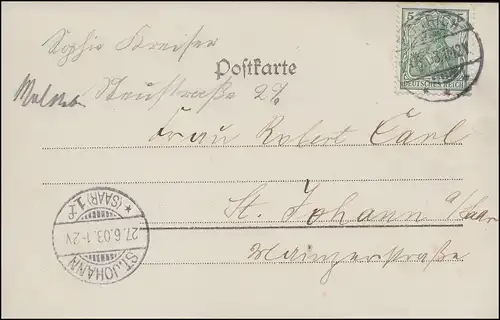 Sophie Kreiser
Postkarte
Neustraße 2
Frau Robert Carl
St. Johann a/Saar
Mainzerstraße
5
DEUTSCHES REICH
ST. JOHANN
27.6.03. 1-2 N
* (SAAR) 1